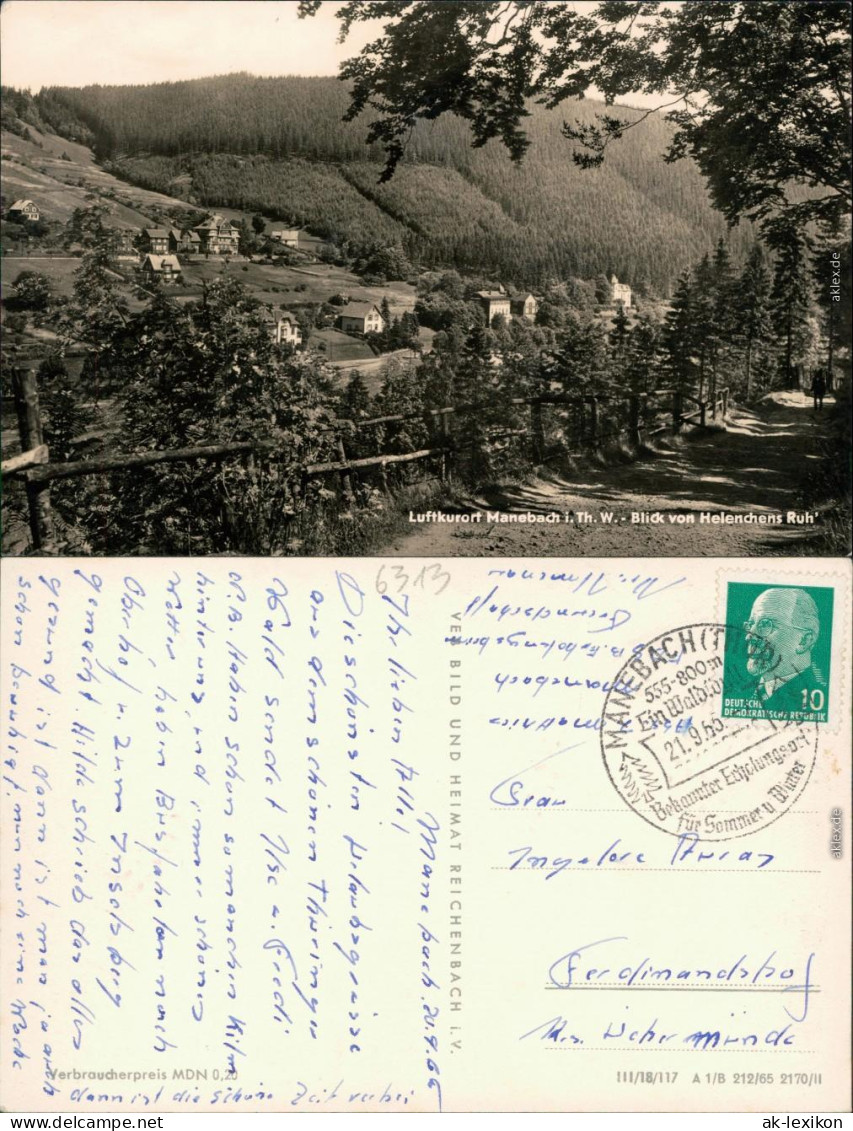 Luftkurort Manebach i. Th. W. - Blick von Helenchens Ruh'
aklex.de
6313
Manebach, 20.9.65
Ihr lieben Alle!
Die schönsten Urlaubsgrüsse
aus dem schönen Thüringer
Wald sendet Ilse u. Friedi
N.B. Haben schon so manchen Kilm.
hinter uns, und immer schönes
Wetter haben Busfahrten nach
Oberhof u. zum Inselsberg
gemacht. Hilde schrieb das alles
gesund ist dann ist man ja auch
schon beruhigt, nun noch eine Woche
dann ist die schöne Zeit vorbei
VEB BILD UND HEIMAT REICHENBACH i. V.
Verbraucherpreis MDN 0,20
Manebach
MANEBACH (THÜR)
555-800m
Ein Wald
21.9.65
Bekannter Erholungsort
für Sommer u. Winter
DEUTSCHE
DEMOKRATISCHE REPUBLIK
10
Frau
Ingelore
Ferdinandshof
Krs. Uckermünde
III/18/117 A 1/B 212/65 2170/II
aklex.de
ak-lexikon
ak-lexikon